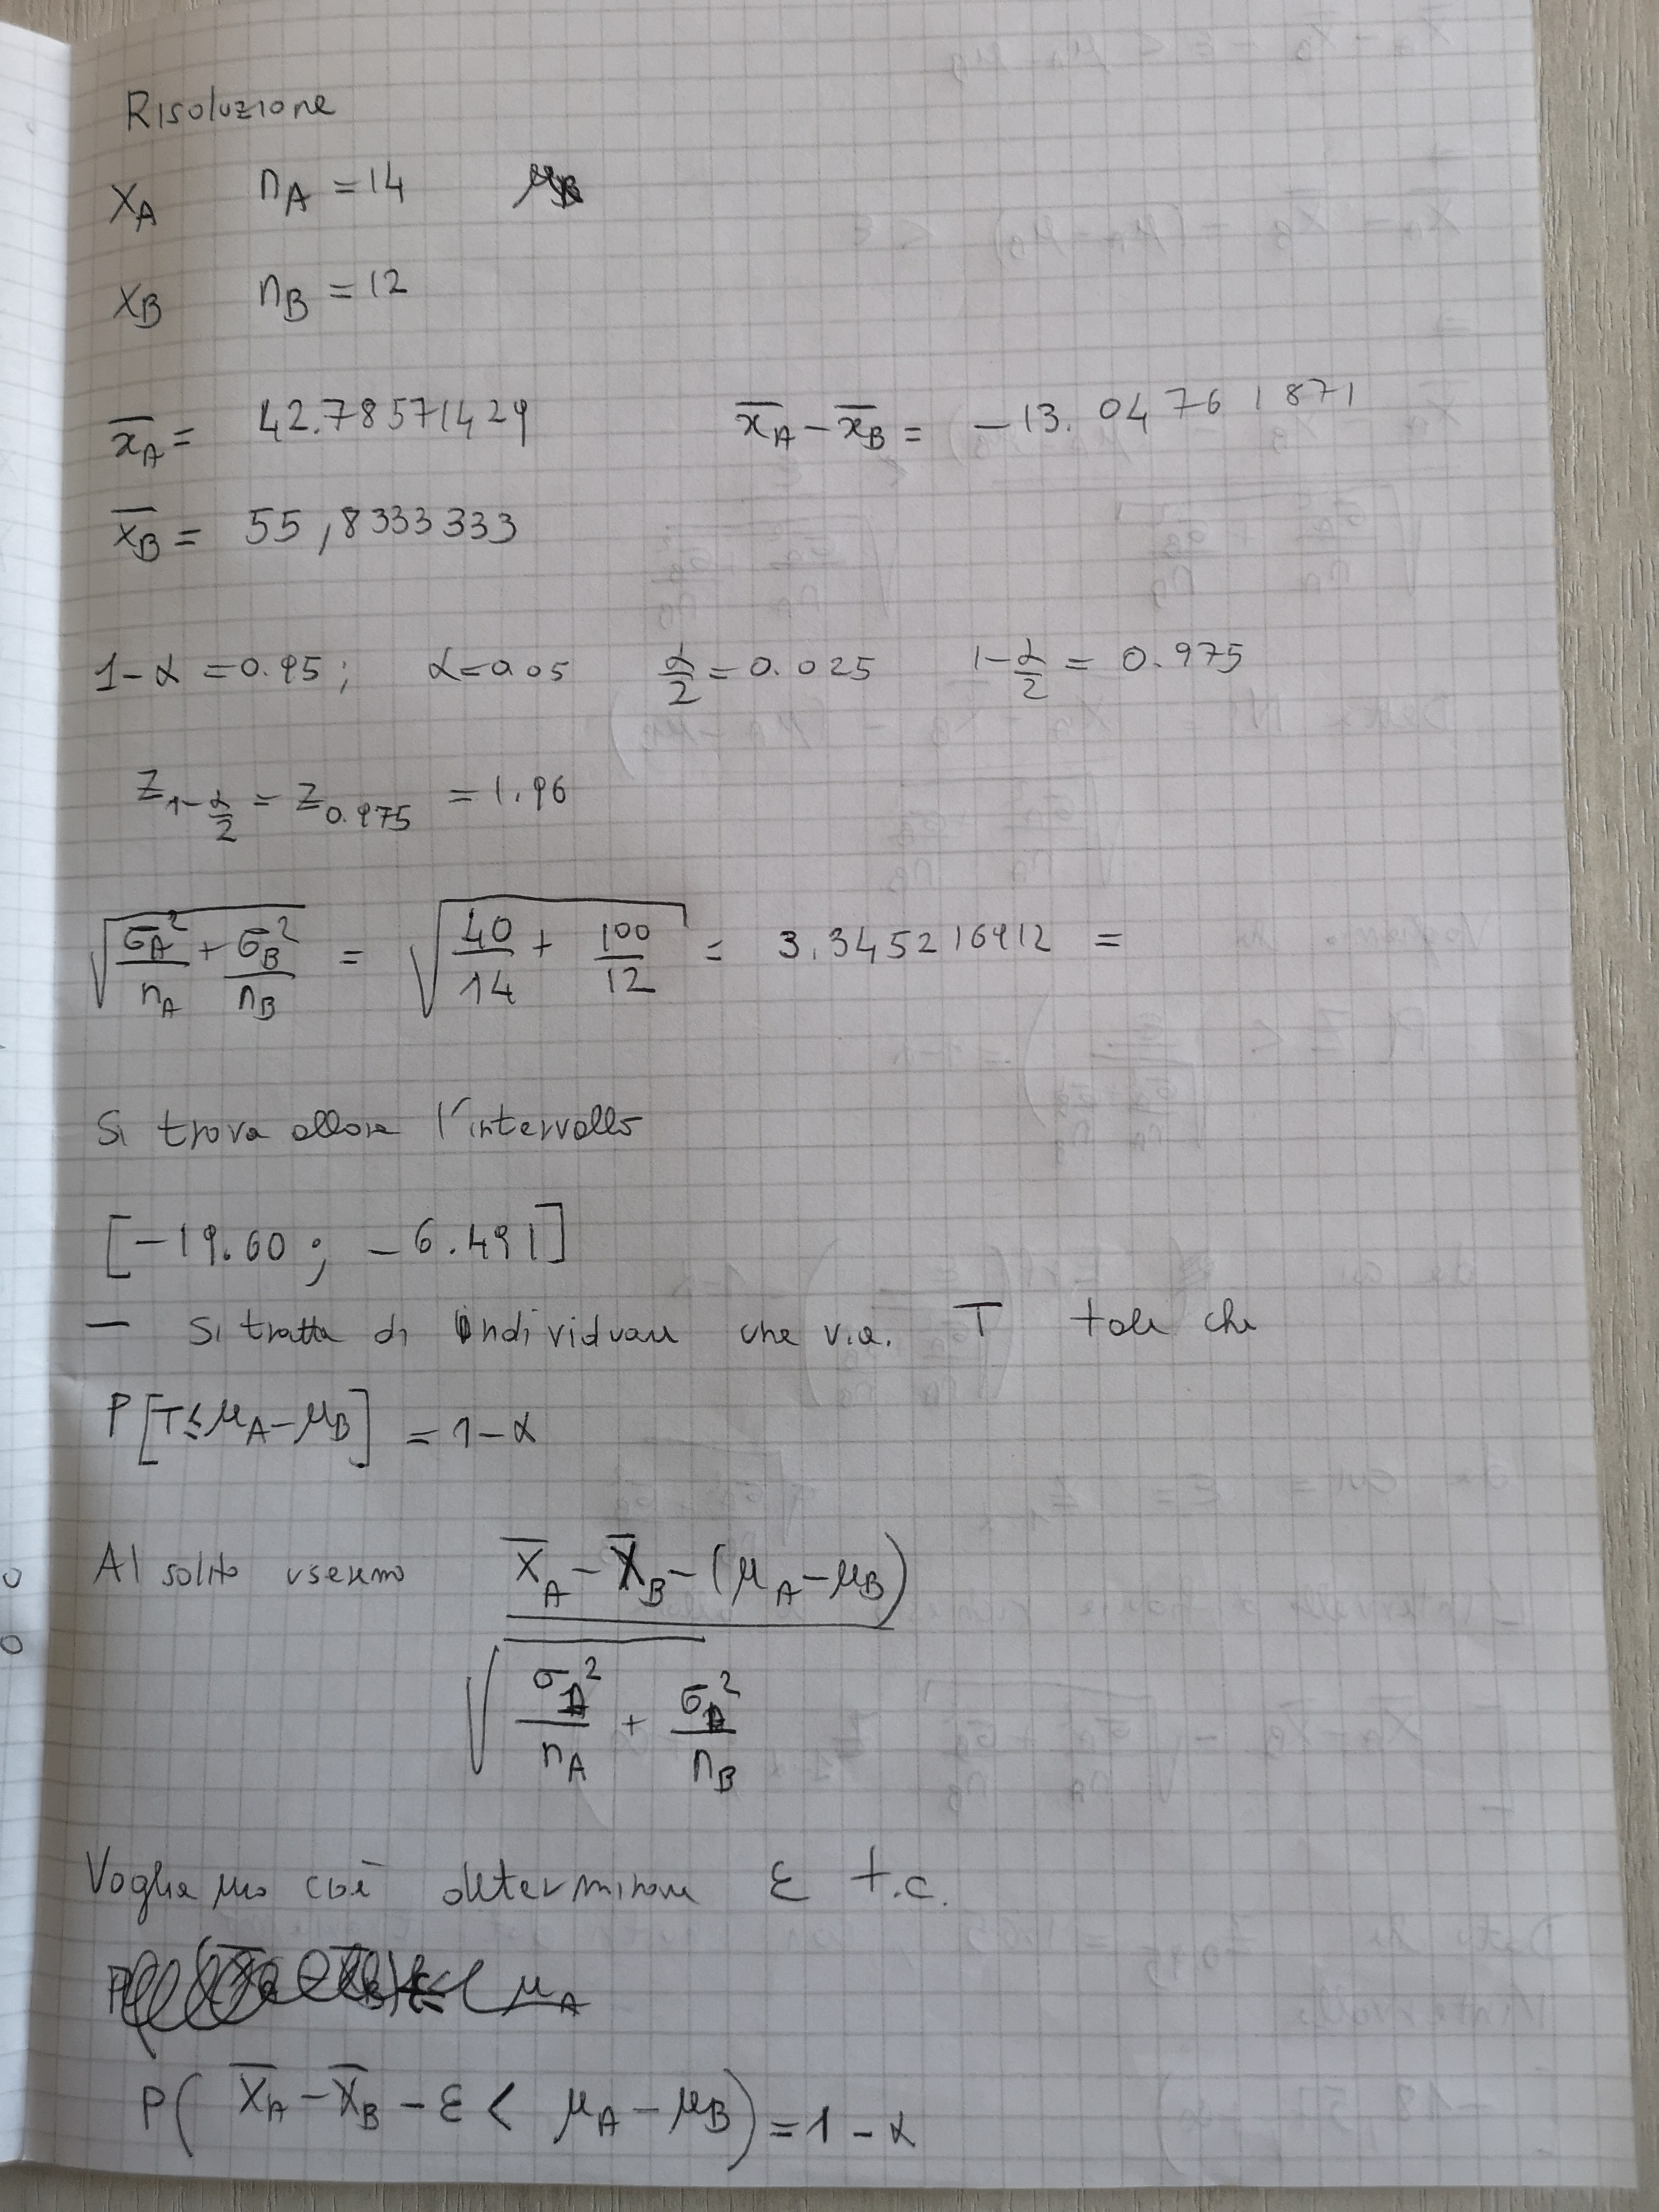 Risoluzione
X_A n_A = 14
X_B n_B = 12
x̄_A = 42.78571429 x̄_A - x̄_B = -13.04761871
x̄_B = 55,8333333
1-α = 0.95; α=0.05 α/2 = 0.025 1-α/2 = 0.975
Z_{1-α/2} = Z_{0.975} = 1.96
√(σ_A²/n_A + σ_B²/n_B) = √(40/14 + 100/12) = 3.345216912 =
Si trova allora l'intervallo
[-19.60 ; -6.491]
— Si tratta di individuare una v.a. T tale che
P[T ≤ μ_A - μ_B] = 1-α
Al solito useremo (X̄_A - X̄_B - (μ_A - μ_B)) / √(σ_A²/n_A + σ_B²/n_B)
Vogliamo cioè determinare ε t.c.
P( X̄_A - X̄_B - ε < μ_A - μ_B) = 1 - α